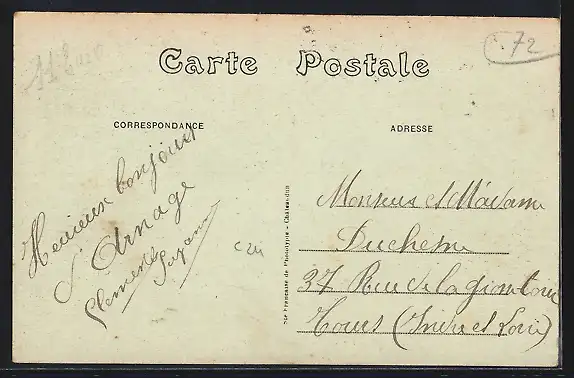 72
Carte Postale
CORRESPONDANCE
ADRESSE
Heureux bonjour
d'Arnage
Clemence
Suzanne
C 24
Sté Française de Phototypie - Châteaudun
Monsieur et Madame
Duchesne
37 Rue de la
Tours (Indre et Loire)